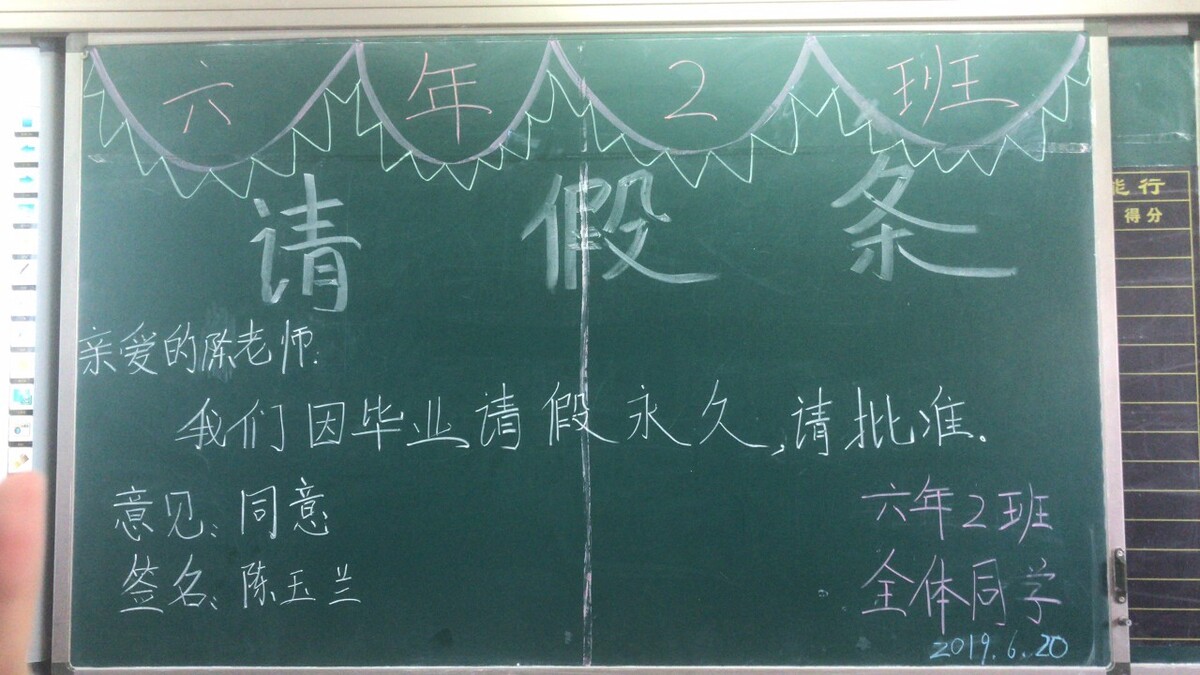 六年2班
请假条
亲爱的陈老师.
我们因毕业请假永久,请批准.
意见:同意
签名:陈玉兰
六年2班
全体同学
2019.6.20
能行
得分